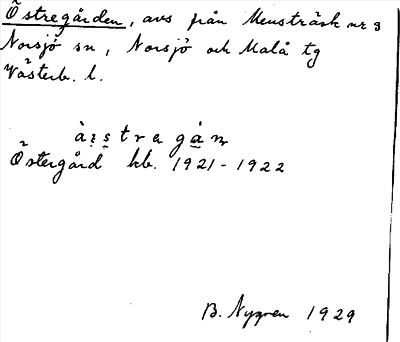 Östregården, avs från Mensträsk nr 3
Norsjö sn, Norsjö och Malå tg
Västerb. l.
Östergård kb. 1921-1922
B. Nygren 1929